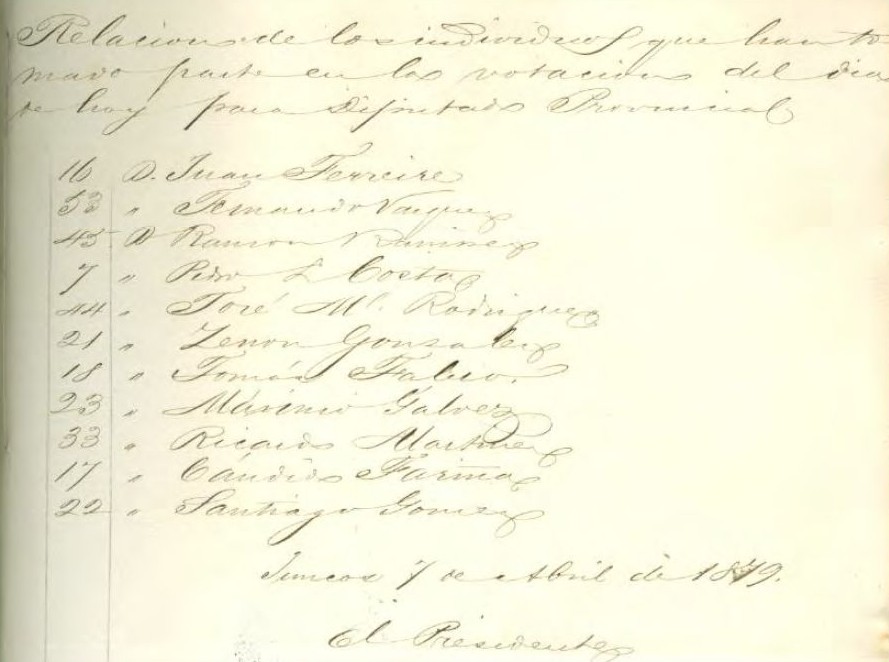 Relacion de los individuos que han to
mado parte en la votacion del dia
de hoy para Diputado Provincial
16 D. Juan Ferreire
53 " Fernando Vazquez
45 D Ramon Nuñinez
7 " Pedro L Costa
44 " José Mª. Rodriguez
21 " Zenon Gonzalez
18 " Tomás Falero.
23 " Máximo Galvez
33 " Ricardo Martinez
17 " Cándido Fariña
22 " Santiago Gomez
Juncos 7 de Abril de 1879.
El Presidente